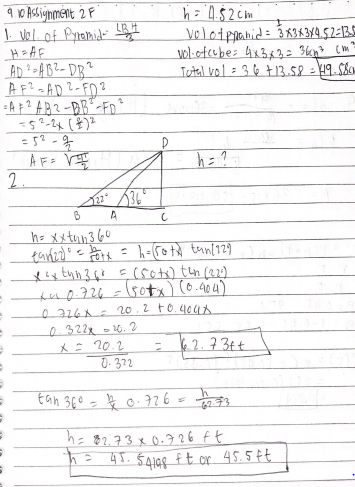 9.10 Assignment 2F
1. Vol. of Pyramid = LBH/3
H = AF
AD² = AB² - DB²
AF² = AD² - FD²
= AF² AB² - DB² - FD²
= 5² - 2x (3/2)²
= 5² - 9/2
AF = √41/2
h = 4.52cm
Vol of pyramid = 1/3 x 3 x 3 x 4.52 = 13.5
vol. of cube = 4 x 3 x 3 = 36cm³ cm³
Total vol = 36 + 13.58 = 49.58c
2.
D
h = ?
22° 36°
B A C
h = x x tan36°
tan(22)° = h/50+x = h = (50+x) tan(22°)
x x tan36° = (50+x) tan(22°)
x x 0.726 = (50+x) (0.404)
0.726x = 20.2 + 0.404x
0.322x = 20.2
x = 20.2/0.322 = 62.73ft
tan 36° = h/x 0.726 = h/62.73
h = 62.73 x 0.726 ft
h = 45.54198 ft or 45.5ft